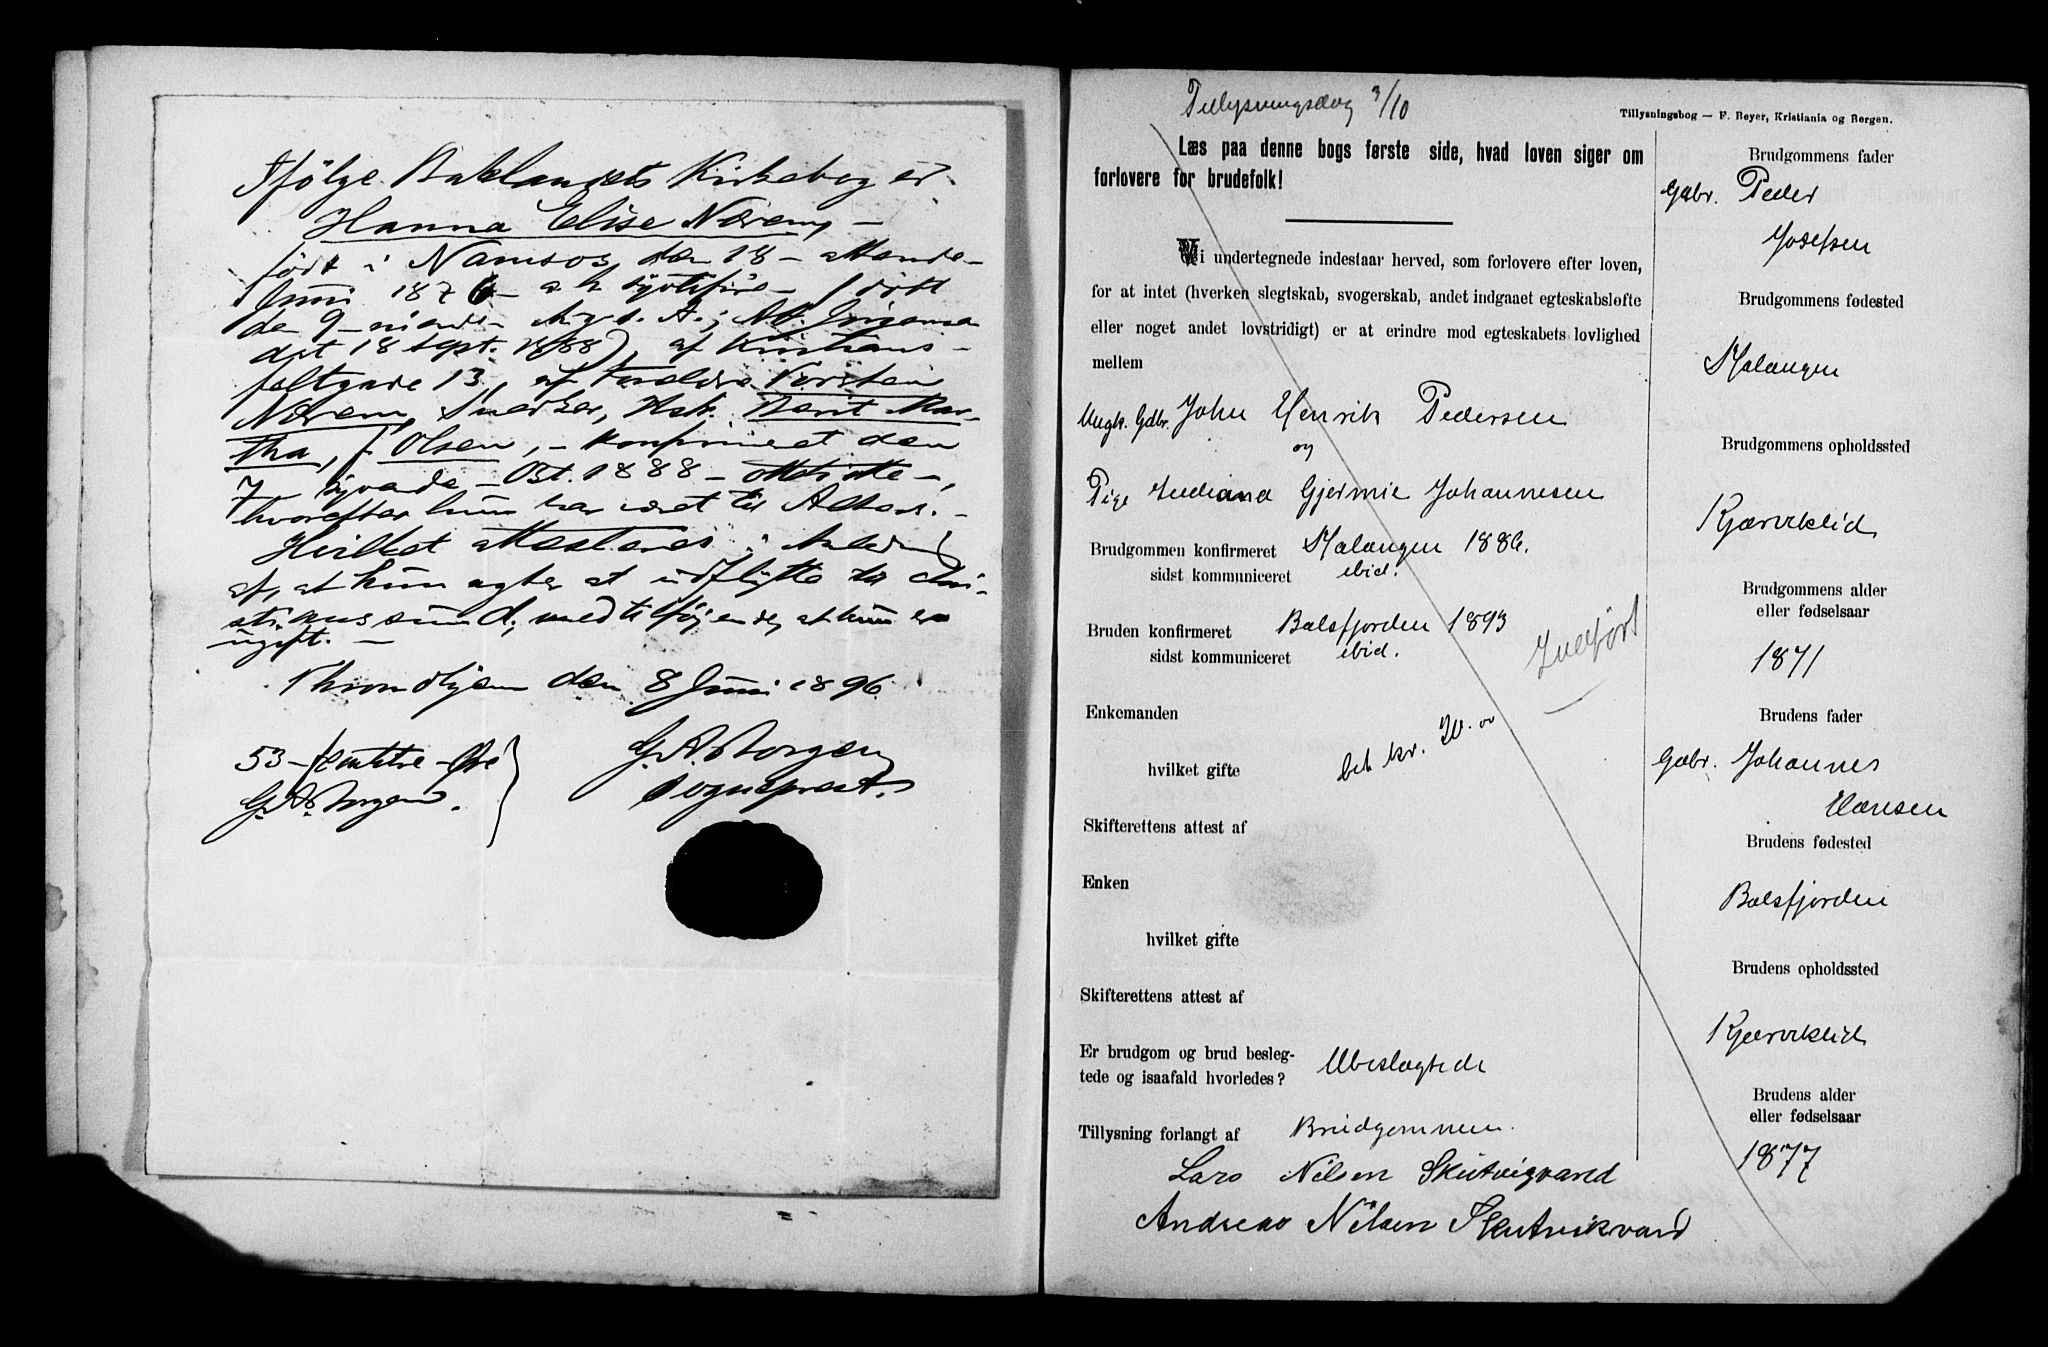 Ifølge Baklandets Kirkebog er
Hanna Elise Nærem,
født i Namsos den 18 – attende –
Juni 1876 – døbt
den 9 – niende –
det 18 Sept. 1888), af Kristians-
feltgade 13, af Forældre Torsten
Nærem, Snedker, Hstr. Berit Mar-
tha, f. Olsen, – konfirmeret den
7 syvende – Okt. 1888 – otteiotte –,
hvorefter hun har været til Alters. –
Hvilket attesteres i Anledning
af, at hun agter at udflytte til Chri-
stianssund, med tilføjende, at hun er
ugift. –
Throndhjem den 8 Juni 1896.
53 – femtitre – Øre
G. A. Borgen
Sogneprest.
G. A. Borgen.
Tillysningsdag 3/10
Tillysningsbog — F. Beyer, Kristiania og Bergen.
Læs paa denne bogs første side, hvad loven siger om
forlovere for brudefolk!
Vi undertegnede indestaar herved, som forlovere efter loven,
for at intet (hverken slegtskab, svogerskab, andet indgaaet egteskabsløfte
eller noget andet lovstridigt) er at erindre mod egteskabets lovlighed
mellem
Ungk. Gdbr. John Henrik Pedersen
og
Pige Indiana Gjermie Johannesen
Brudgommen konfirmeret Malangen 1886.
sidst kommuniceret ibid.
Bruden konfirmeret Balsfjorden 1893
sidst kommuniceret ibid.
Indført
Enkemanden
hvilket gifte
bet. kr. 20.00
Skifterettens attest af
Enken
hvilket gifte
Skifterettens attest af
Er brudgom og brud besleg-
tede og isaafald hvorledes? Ubeslægtede
Tillysning forlangt af Brudgommen.
Lars Nilsen Skutvigvand
Andreas Nilsen Skutvikvand
Brudgommens fader
Gdbr. Peder
Josefsen
Brudgommens fødested
Malangen
Brudgommens opholdssted
Kjærviklid
Brudgommens alder
eller fødselsaar
1871
Brudens fader
Gdbr. Johannes
Hansen
Brudens fødested
Balsfjorden
Brudens opholdssted
Kjærviklid
Brudens alder
eller fødselsaar
1877